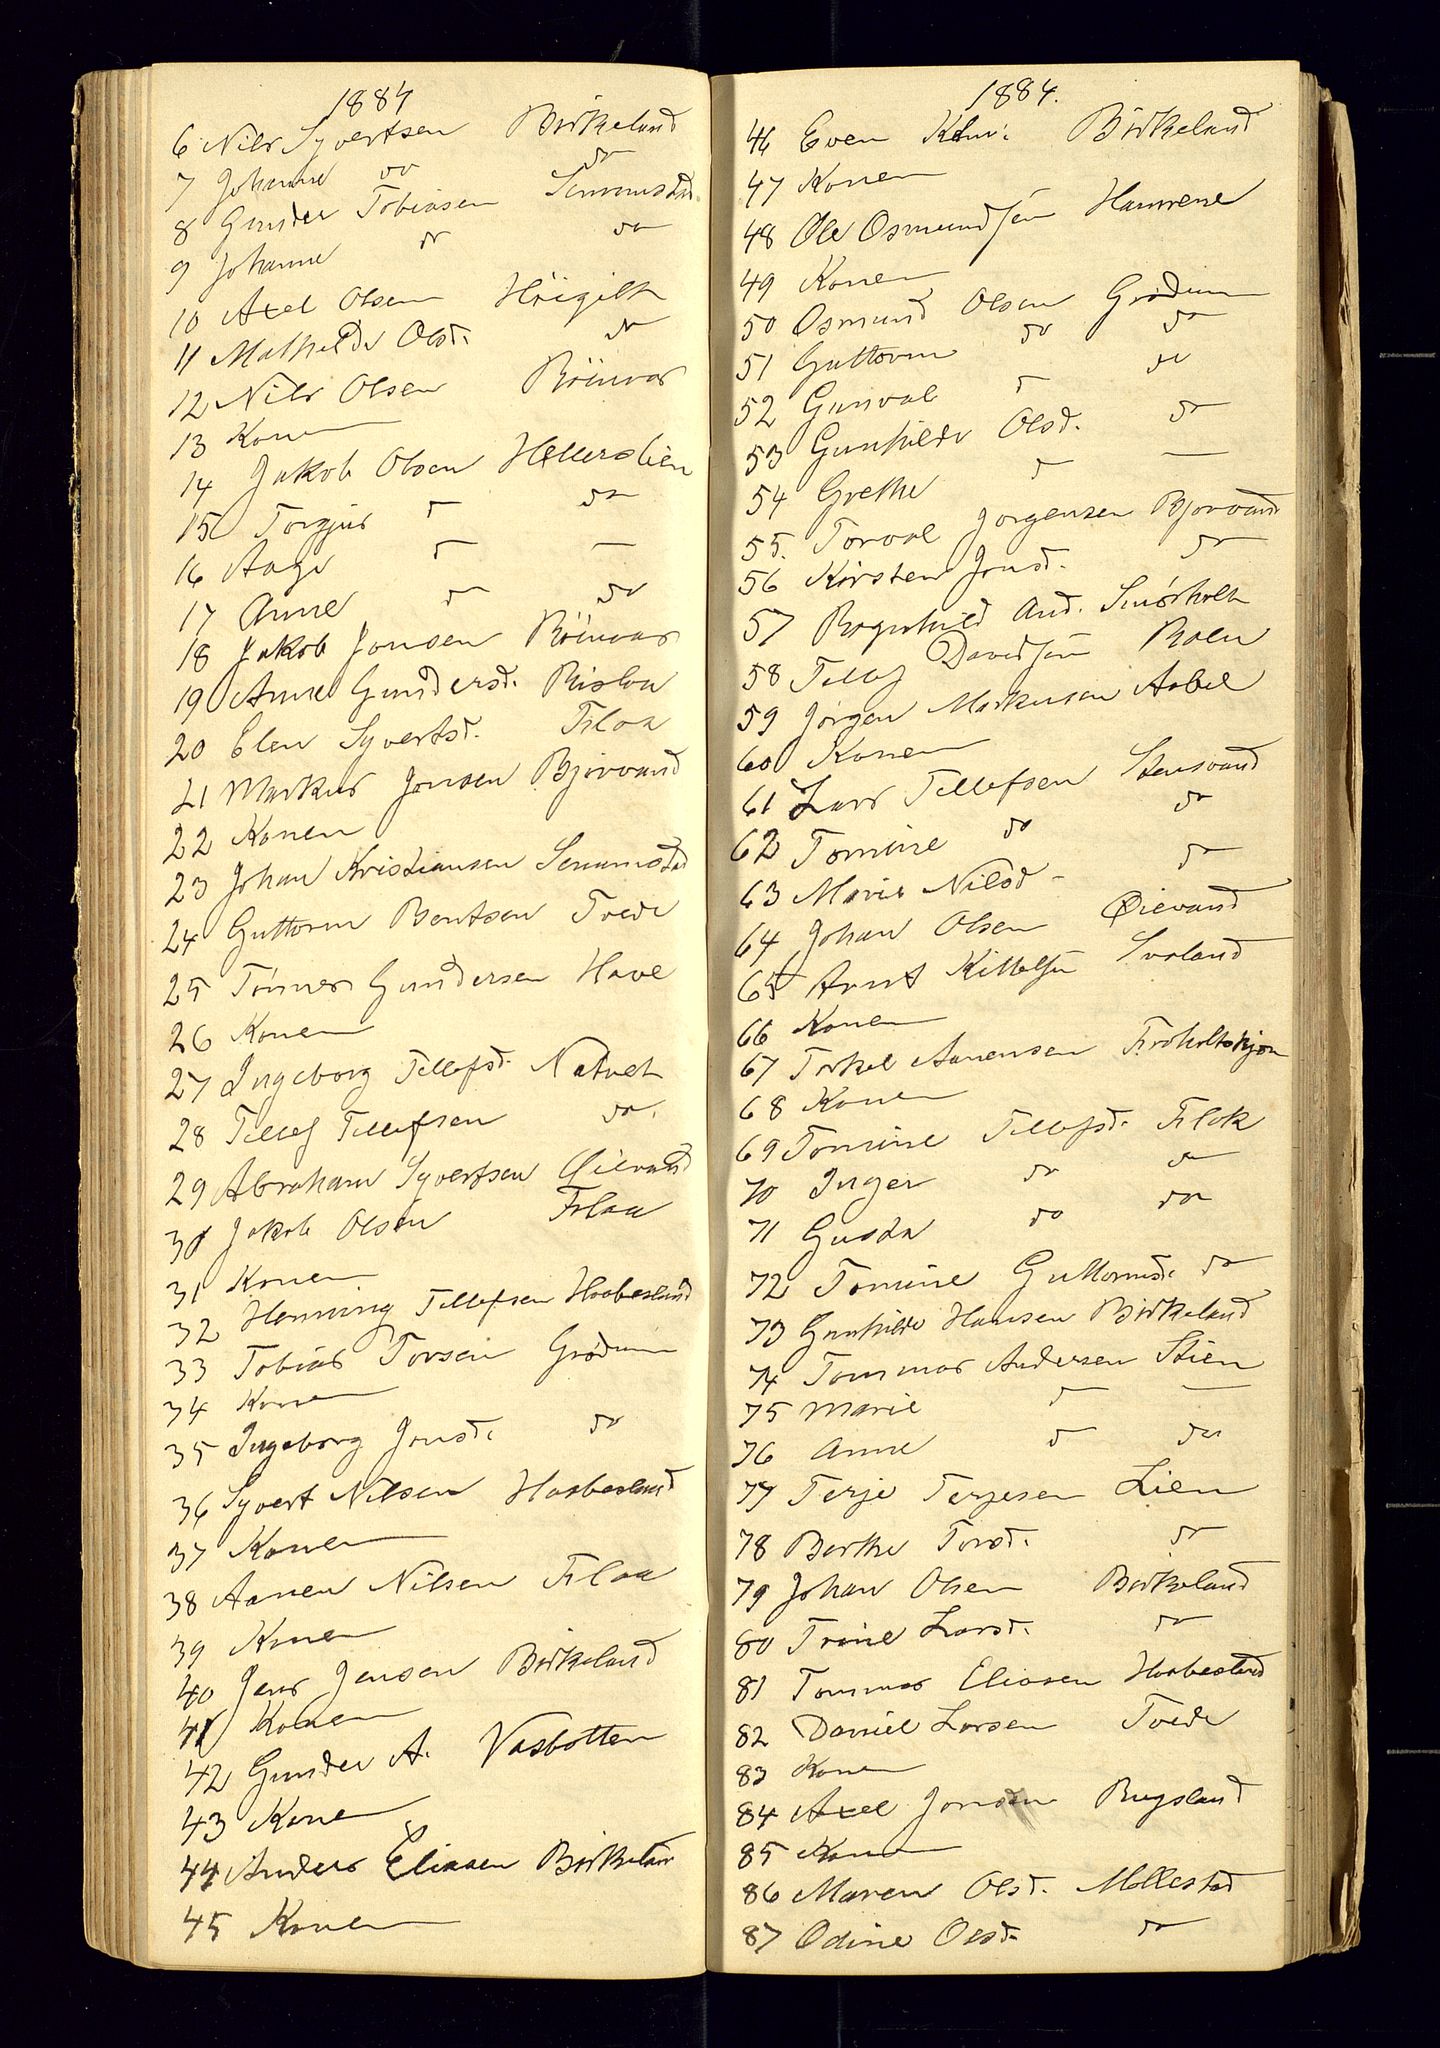 1884
6 Nils Syvertsen Birkeland
7 Johanne do do
8 Gunder Tobiasen Senumstad
9 Johanne do do
10 Axel Olsen Höigilt
11 Mathilde Olsd. do
12 Nils Olsen Röinvas
13 Konen
14 Jakob Olsen Hellerslien
15 Torgjus d do
16 Aage d —
17 Anne do do
18 Jakob Jonsen Röinvas
19 Anne Gundersd. Rislaa
20 Elen Syvertsd. Flaa
21 Markus Jonsen Bjorvand
22 Konen
23 Johan Kristiansen Senumstad
24 Guttorm Bentsen Tvede
25 Tönnes Gundersen Have
26 Konen
27 Ingeborg Tellefsd. Natvet
28 Tellef Tellefsen do.
29 Abraham Syvertsen Øievand
30 Jakob Olsen Flaa
31 Konen
32 Henning Tellefsen Haabesland
33 Tobias Torsen Grødum
34 Konen
35 Ingeborg Jonsd. do
36 Syvert Nilsen Haabesland
37 Konen
38 Aanen Nilsen Flaa
39 Konen
40 Jens Jensen Birkeland
41 Konen
42 Gunder A. Vasbotten
43 Konen
44 Anders Eliasen Birkeland
45 Konen
1884.
46 Even Birkeland
47 Konen
48 Ole Osmundsen Hamrene
49 Konen
50 Osmund Olsen Grødum
51 Guttorm do do
52 Gunval d do
53 Gunhilde Olsd. do
54 Grethe d —
55. Torval Jorgensen Bjorvand
56 Kirsten Jonsd. do
57 Ragnhild And. Smörholt
58 Tellef Davidsen Roen
59 Jörgen Markusen Aabel
60 Konen
61 Lars Tellefsen Stensvand
62 Tomine do do
63 Marie Nilsd- do
64 Johan Olsen Øievand
65 Arnt Kittelsen Svaland
66 Konen
67 Torkel Aanensen Froholtskjær
68 Konen
69 Tomine Tellefsd. Flak
70 Inger do do
71 Gusta do do
72 Tomine Guttormsd. do
73 Gunhilde Hansen Birkeland
74 Tommas Andersen Stien
75 Marie d —
76 Anne d do
77 Terje Terjesen Lien
78 Berthe Torsd. do
79 Johan Olsen Birkeland
80 Trine Larsd. do
81 Tommas Eliasen Haabesland
82 Daniel Larsen Tvede
83 Konen
84 Axel Jonsen Rugsland
85 Konen
86 Maren Olsd. Mollestad
87 Odine Olsd. do